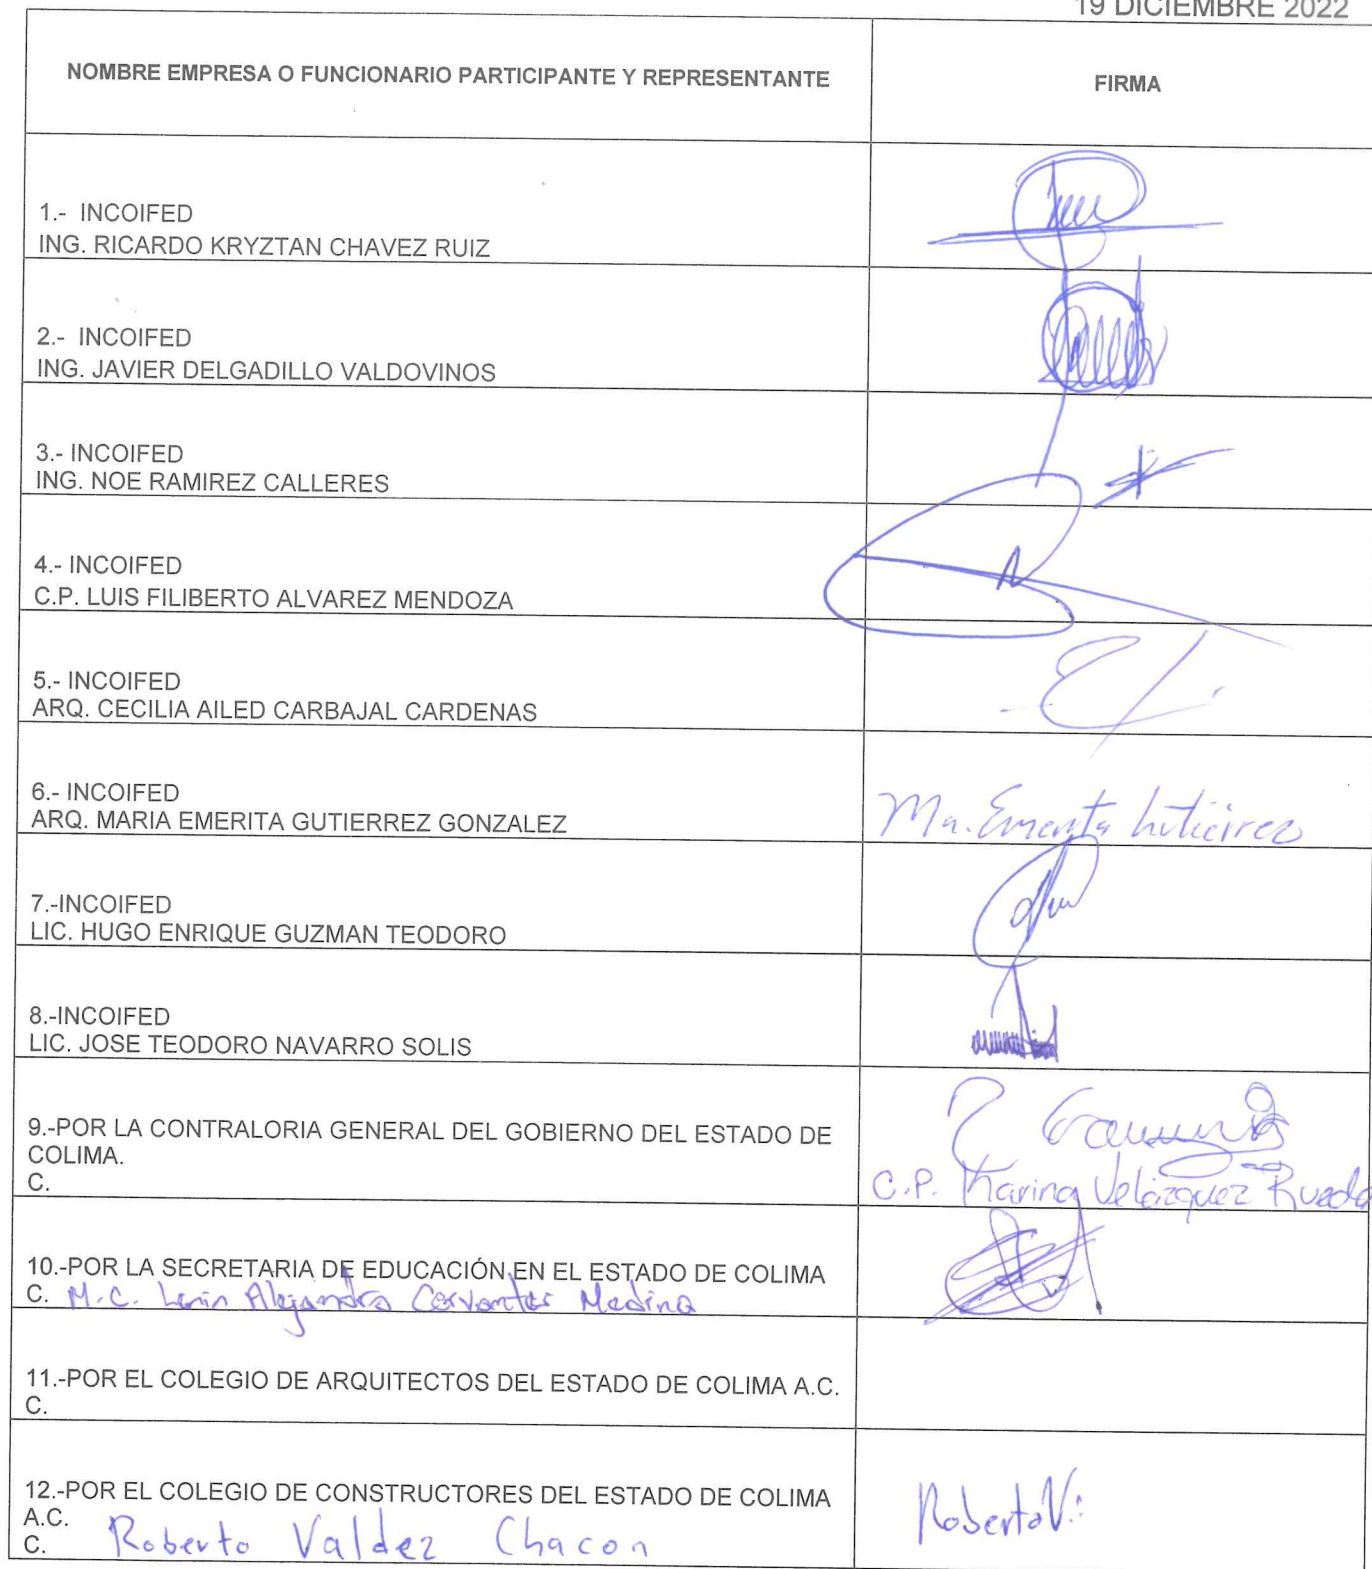 19 DICIEMBRE 2022
NOMBRE EMPRESA O FUNCIONARIO PARTICIPANTE Y REPRESENTANTE
FIRMA
1.- INCOIFED
ING. RICARDO KRYZTAN CHAVEZ RUIZ
2.- INCOIFED
ING. JAVIER DELGADILLO VALDOVINOS
3.- INCOIFED
ING. NOE RAMIREZ CALLERES
4.- INCOIFED
C.P. LUIS FILIBERTO ALVAREZ MENDOZA
5.- INCOIFED
ARQ. CECILIA AILED CARBAJAL CARDENAS
6.- INCOIFED
ARQ. MARIA EMERITA GUTIERREZ GONZALEZ
Ma. Emerita Gutiérrez
7.-INCOIFED
LIC. HUGO ENRIQUE GUZMAN TEODORO
8.-INCOIFED
LIC. JOSE TEODORO NAVARRO SOLIS
9.-POR LA CONTRALORIA GENERAL DEL GOBIERNO DEL ESTADO DE
COLIMA.
C.
C.P. Karina Velázquez Rueda
10.-POR LA SECRETARIA DE EDUCACIÓN EN EL ESTADO DE COLIMA
C. M.C. Lenin Alejandro Cervantes Medina
11.-POR EL COLEGIO DE ARQUITECTOS DEL ESTADO DE COLIMA A.C.
C.
12.-POR EL COLEGIO DE CONSTRUCTORES DEL ESTADO DE COLIMA
A.C.
C. Roberto Valdez Chacon
Roberto V.